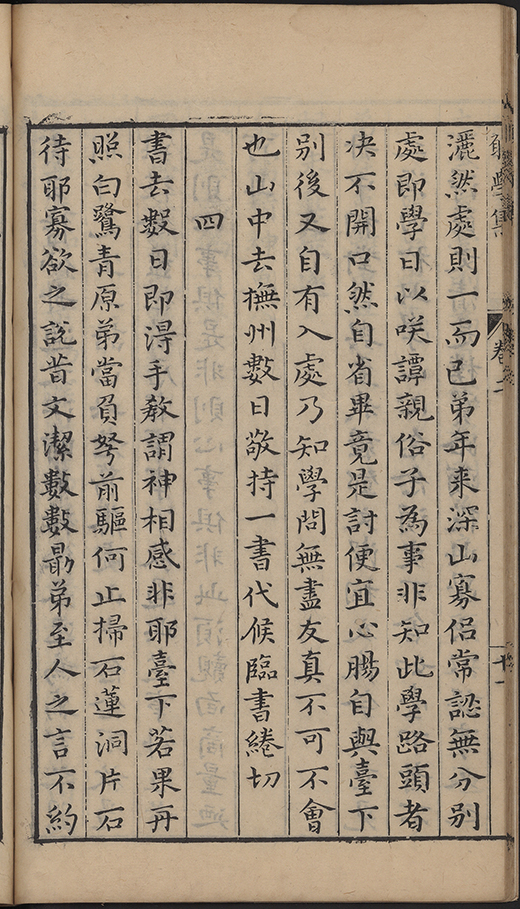 灑然處則一而已弟年来深山寡侣常認無分别
處即學日以咲譚親俗子為事非知此學路頭者
决不開口然自省畢竟是討便宜心腸自與臺下
别後又自有入處乃知學問無盡友真不可不會
也山中去撫州數日敬持一書代候臨書綣切
四
書去數日即淂手教謂神相感非耶臺下若果再
照白鷺青原弟當負弩前驅何止掃石蓮洞片石
待耶寡欲之説昔文潔數數勗弟至人之言不約